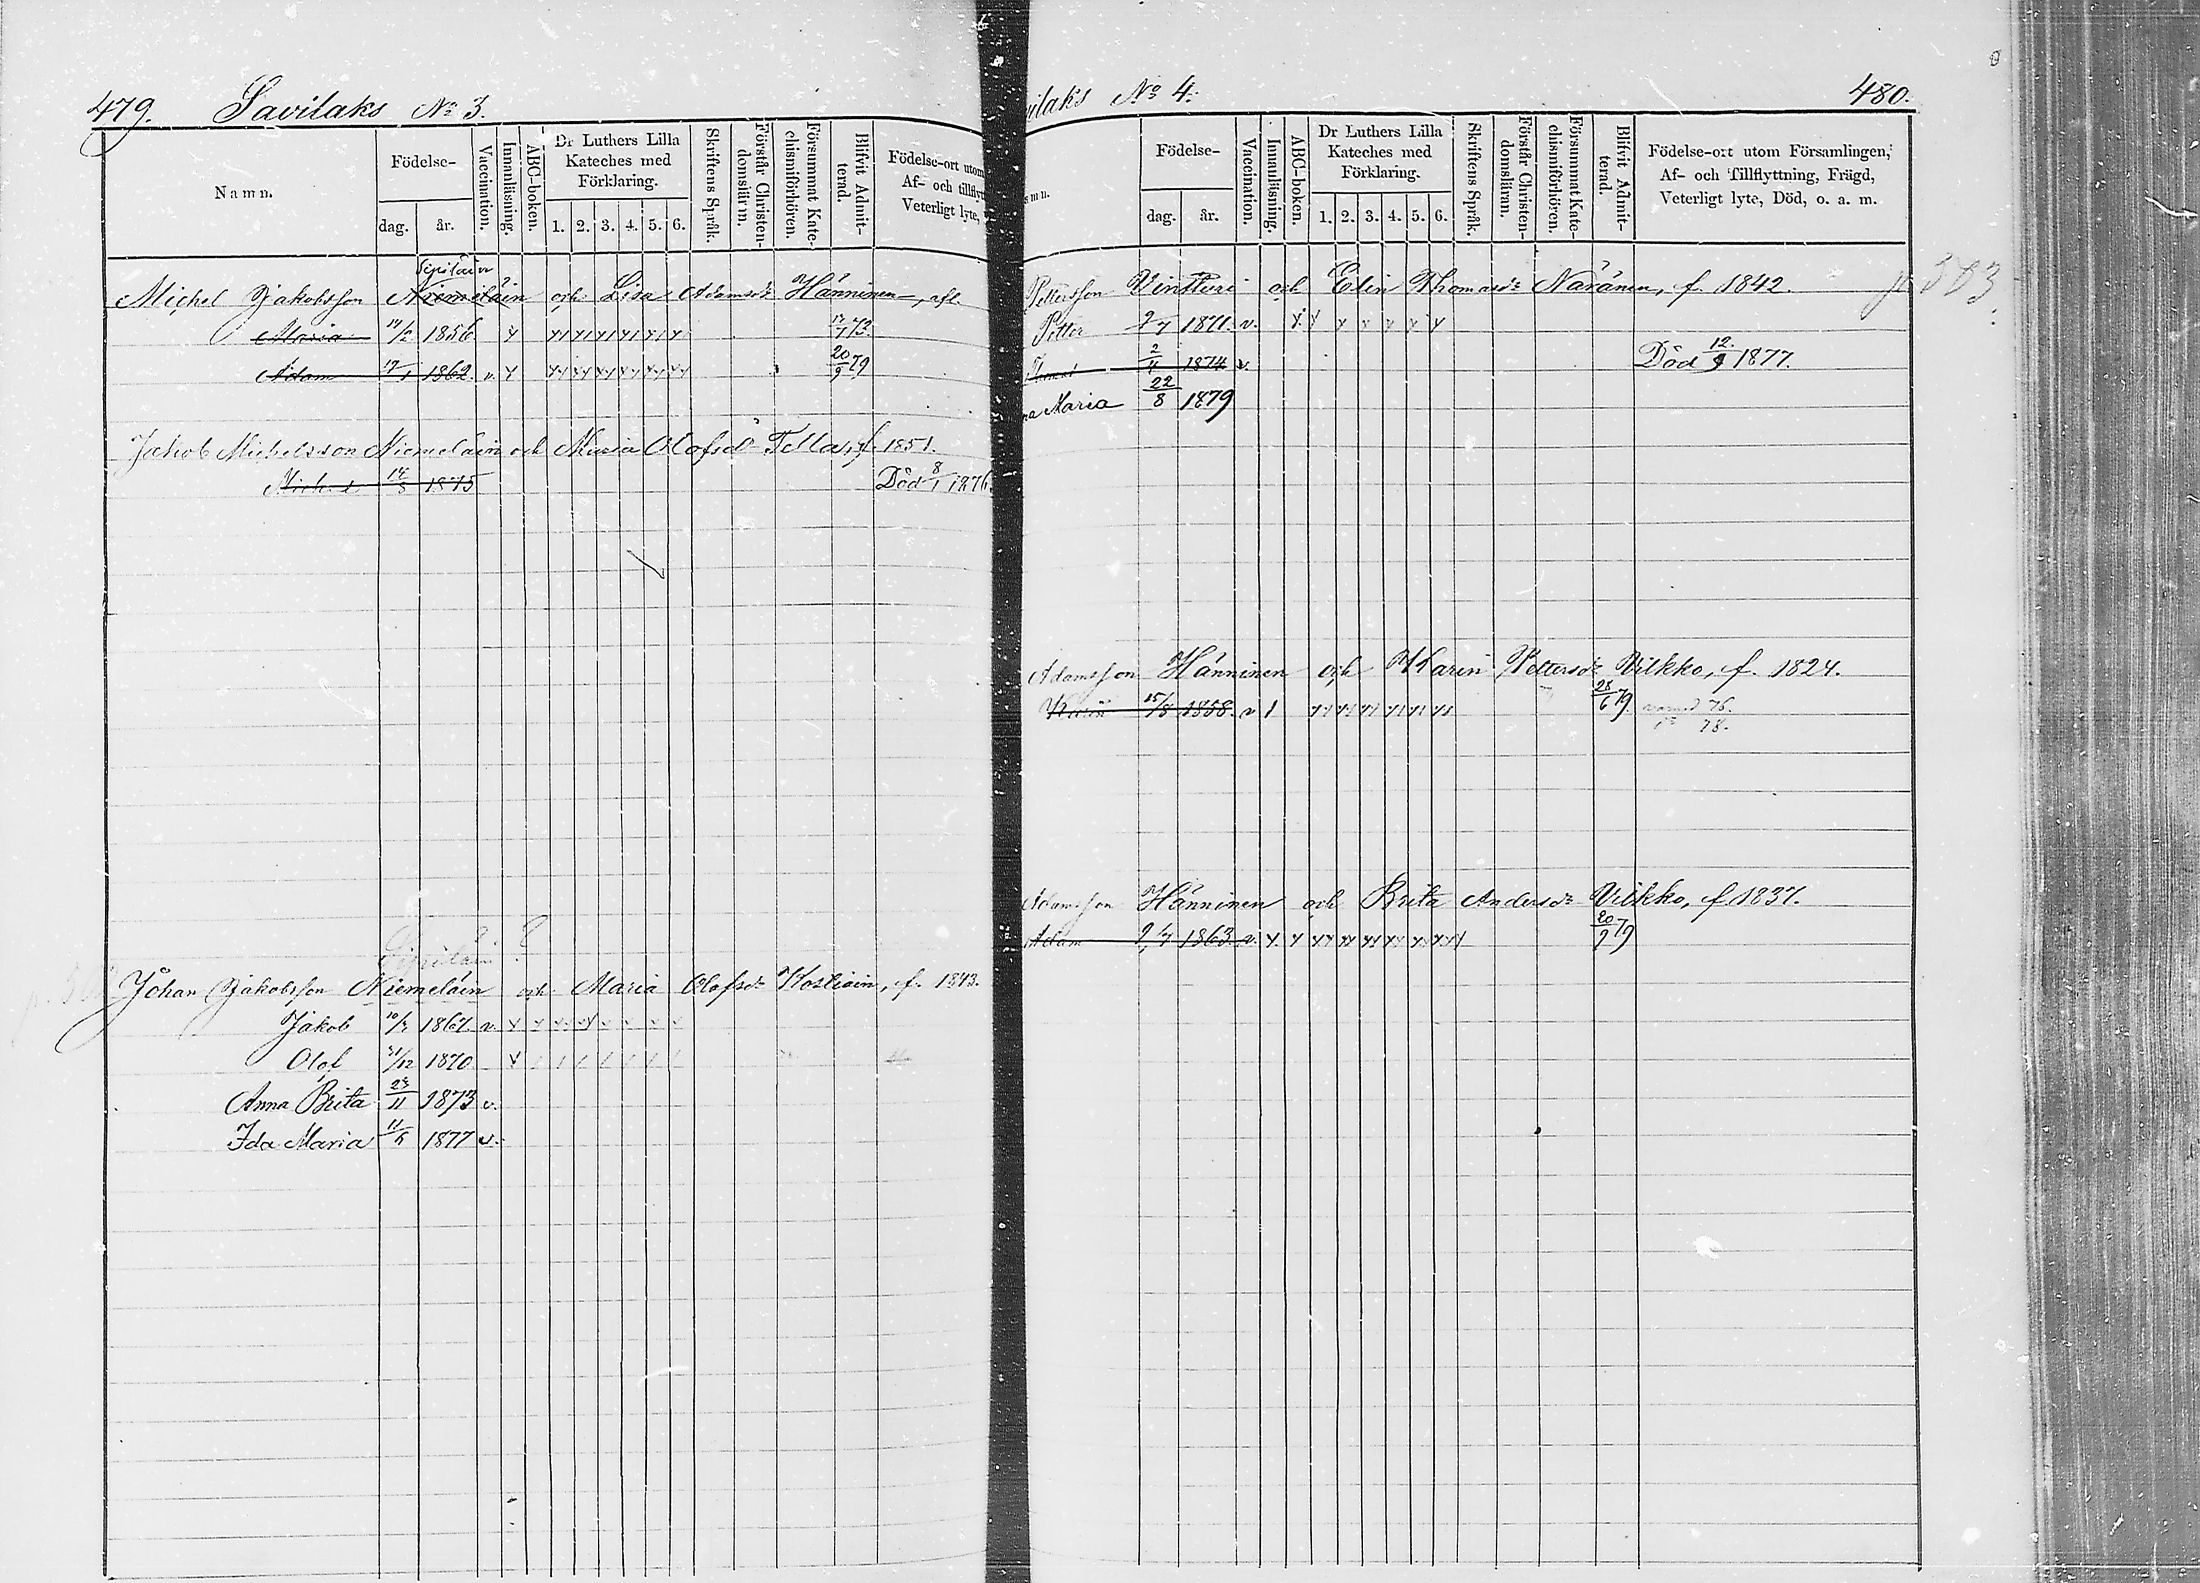 479. Savilaks No 3.
Namn.
Födelse-
dag. år.
Vaccination.
Innanläsning.
ABC-boken.
Dr Luthers Lilla
Kateches med
Förklaring.
1. 2. 3. 4. 5. 6.
Skriftens Språk.
Förstår Christen-
domslärn.
Försummat Kate-
chismiförhören.
Blifvit Admit-
terad.
Födelse-ort utom
Af- och tillflytt
Veterligt lyte,
Sipiläin
Michel Jakobsson Niemeläin och Lisa Adamsdr Hänninen
Maria 1856 17/7 73.
Adam 17/1 1862. v. 20/9 79
Jakob Michelsson Niemeläin och Maria Olofsdr Tella, f. 1851.
Michel 1875 Död 8/1 1876.
Sipiläin ?
Johan Jakobsson Niemeläin och Maria Olofsdr Kostiain, f. 1843.
Jakob 1867. v.
Olof 31/12 1870
Anna Brita 23/11 1873 v.
Ida Maria 11/5 1877 v.
ilaks No 4. 480.
mn.
Födelse-
dag. år.
Vaccination.
Innanläsning.
ABC-boken.
Dr Luthers Lilla
Kateches med
Förklaring.
1. 2. 3. 4. 5. 6.
Skriftens Språk.
Förstår Christen-
domsläran.
Försummat Kate-
chismiförhören.
Blifvit Admit-
terad.
Födelse-ort utom Församlingen,
Af- och Tillflyttning, Frägd,
Veterligt lyte, Död, o. a. m.
Pettersson Vintturi och Elin Thomasdr Näränen, f. 1842. p. 383.
Petter 9/7 1871. v.
2/4 1874 v. Död 12./9 1877.
na Maria 22/8 1879
Adamsson Hänninen och Karin Pettersdr Vilkko, f. 1824.
Karin 15/8 1858. v 28/6 79. 76.
78.
Adamsson Hänninen och Brita Andersdr Vilkko, f 1837.
Adam 9/7 1863 v. 20/9 79